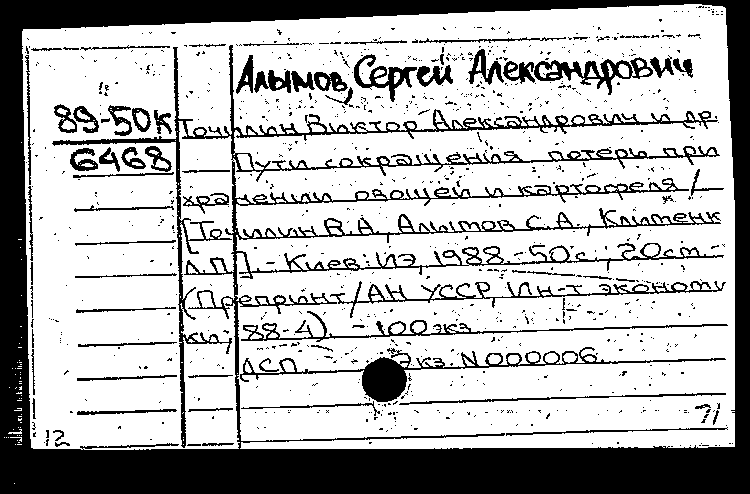 Алымов, Сергей Александрович
89-50к Точилин, Виктор Александрович и др.
6468 Пути сокращения потерь при
хранении овощей и картофеля /
[Точилин В.А., Алымов С.А., Клименк
Л.П.]. - Киев: ИЭ, 1988. - 50 с.; 20 см. -
(Препринт / АН УССР, Ин-т экономи
ки; 88-4). - 100 экз.
ДСП. Экз. N000006.
71
12